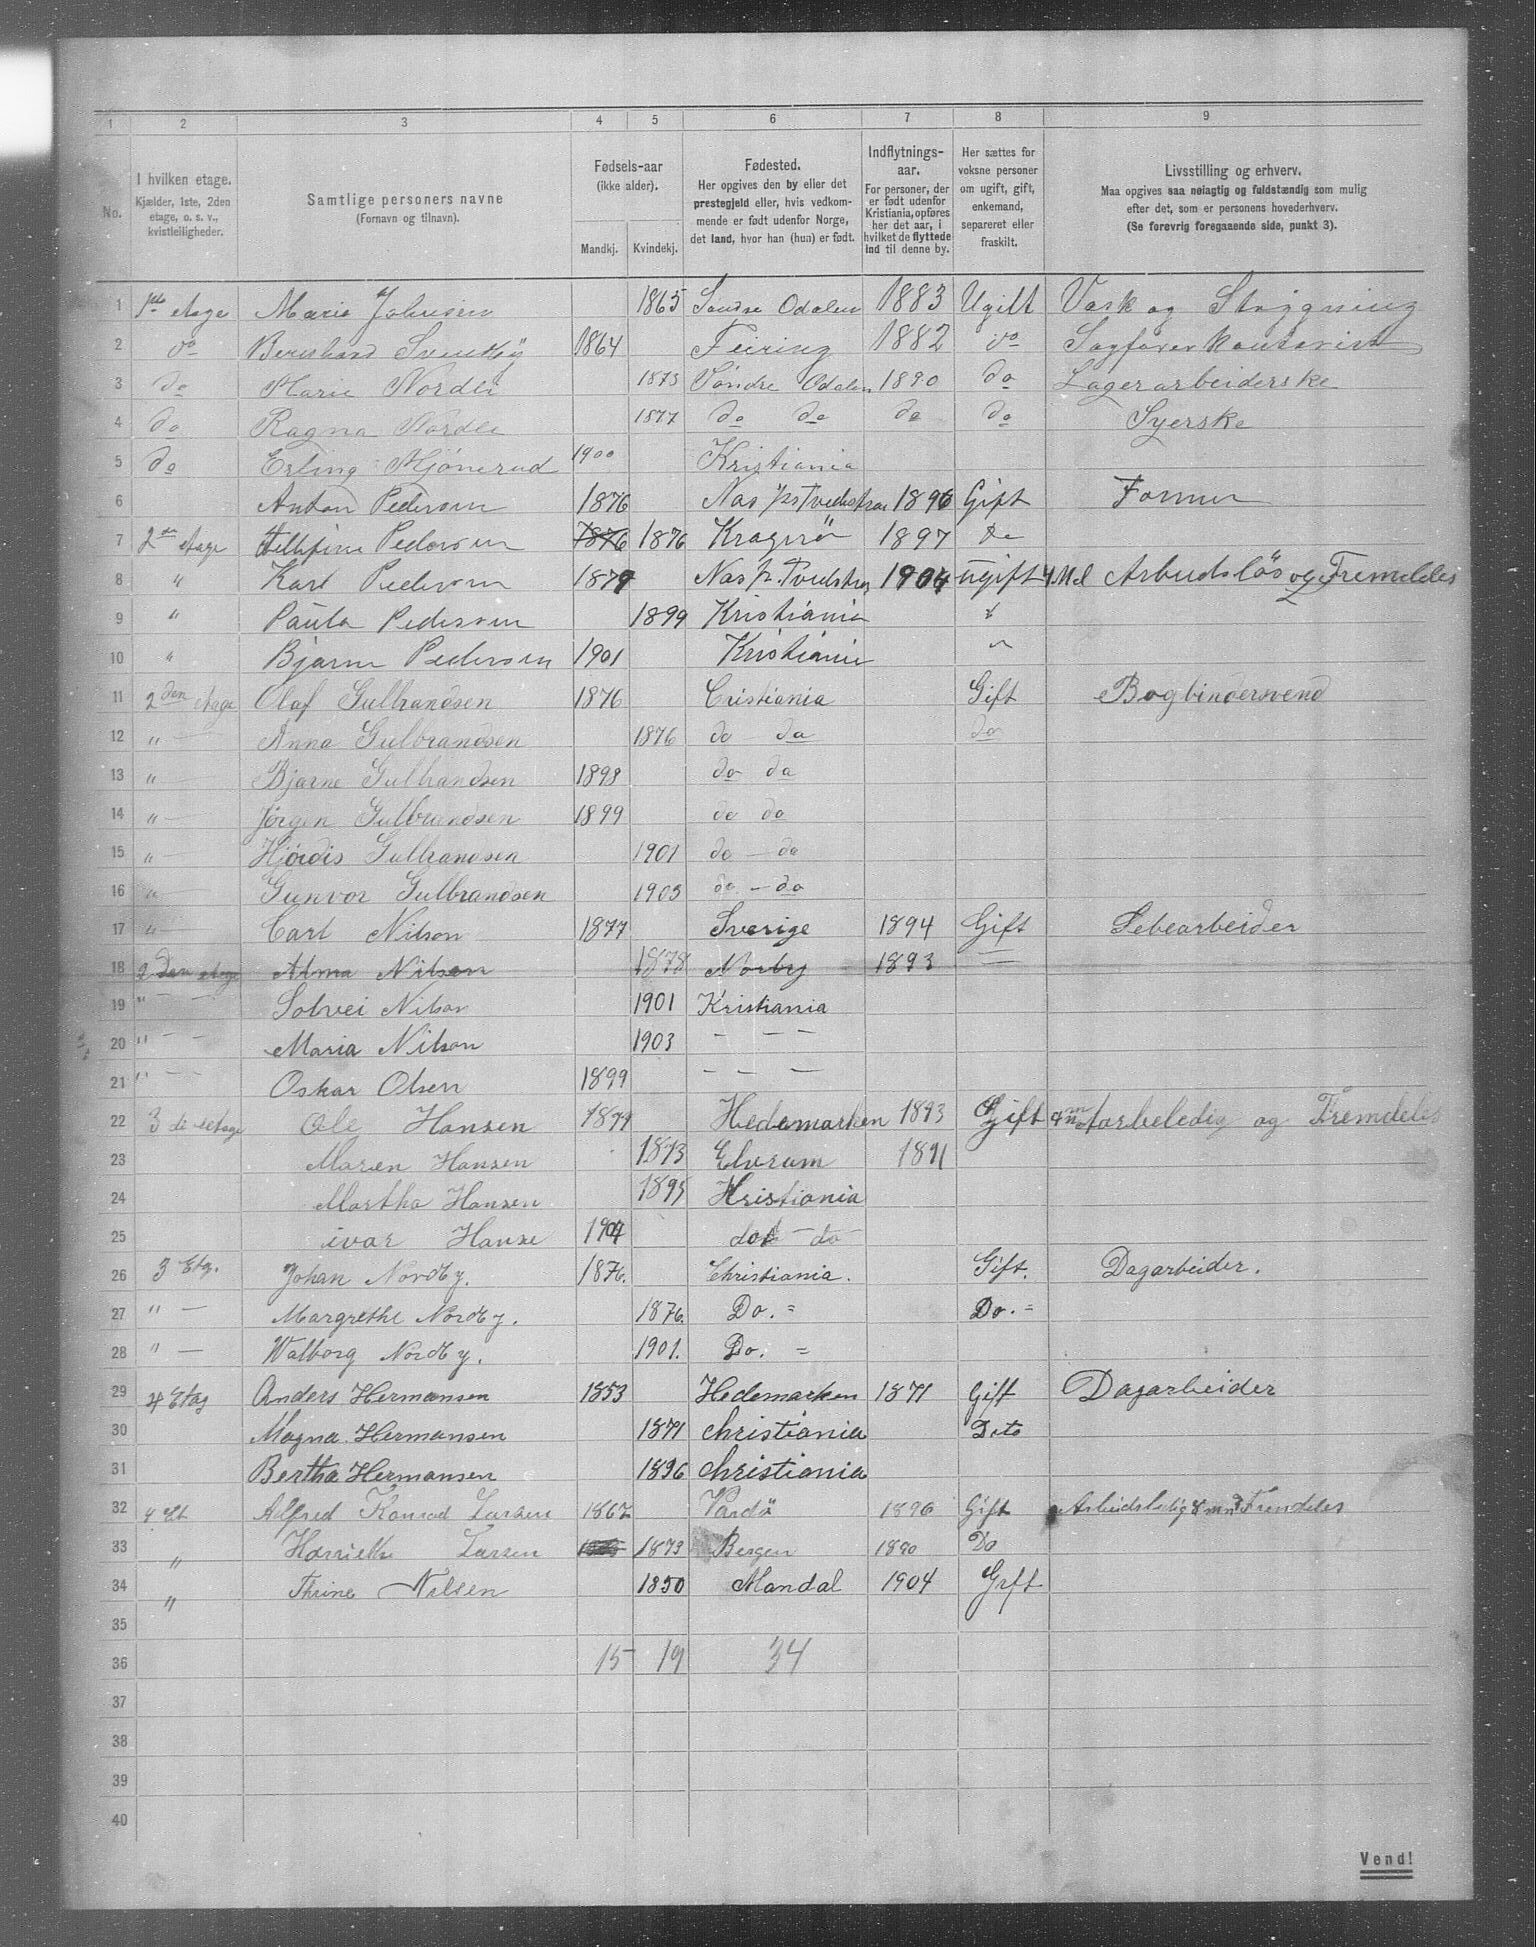 1 2 3 4 5 6 7 8 9
No. I hvilken etage. Kjælder, 1ste, 2den etage, o. s. v., kvistleiligheder. Samtlige personers navne (Fornavn og tilnavn). Fødsels-aar (ikke alder). Mandkj. Kvindekj. Fødested. Her opgives den by eller det prestegjeld eller, hvis vedkommende er født udenfor Norge, det land, hvor han (hun) er født. Indflytnings-aar. For personer, der er født udenfor Kristiania, opføres her det aar, i hvilket de flyttede ind til denne by. Her sættes for voksne personer om ugift, gift, enkemand, separeret eller fraskilt. Livsstilling og erhverv. Maa opgives saa nøiagtig og fuldstændig som mulig efter det, som er personens hovederhverv. (Se forøvrig foregaaende side, punkt 3).
1 1ste etage Marie Johnsen 1865 Søndre Odalen 1883 Ugift Vask og Strygning
2 do Bernhard 1864 Feiring 1882 do Sagførerkontorist
3 do Marie Nordli 1873 Søndre Odalen 1890 do Lagerarbeiderske
4 do Ragna Nordli 1877 do do do do Syerske
5 do Erling Mjönerud 1900 Kristiania
6 Anton Pedersen 1876 Nas ps Tvedestran 1896 Gift Former
7 2den etage Pedersen 1876 1876 Kragerö 1897 do
8 " Karl Pedersen 1879 Nas p. Tvedstra 1904 ugift 4 Md Arbudslös og Fremdeles
9 " Paula Pedersen 1899 Kristiania "
10 " Bjarne Pedersen 1901 Kristiania "
11 2den etage Olaf Gulbrandsen 1876 Cristiania Gift Bogbindersvend
12 " Anna Gulbrandsen 1876 do do do
13 " Bjarne Gulbrandsen 1898 do do
14 " Jørgen Gulbrandsen 1899 do do
15 " Hjórdis Gulbrandsen 1901 do - do
16 " Gunvor Gulbrandsen 1903 do - do
17 " Carl Nilson 1877 Sverige 1894 Gift Sebearbeider
18 2 den etage Alma Nilsen 1878 Norby 1893 —
19 " — Solvei Nilson 1901 Kristiania
20 " — Maria Nilson 1903 — — —
21 " — Oskar Olsen 1899 — — —
22 3 die etage Ole Hansen Hedemarken 1893 Gift og Fremdeles
23 Maren Hansen 1873 Elverum 1891
24 Martha Hansen 1895 Kristiania
25 ivar Hanse 1904 dot - do
26 3 Etg. Johan Nordby. 1876. Christiania. Gift. Dagarbeider.
27 " — Margrethe Nordby. 1876. Do. = Do. =
28 " — Walborg Nordby. 1901. Do. =
29 4 Etag Anders Hermansen 1853 Hedemarken 1871 Gift Dagarbeider
30 Magna Hermansen 1871 christiania Dito
31 Bertha Hermansen 1896 christiania
32 4 Et Alfred Konrad Larsen 1867 Vardö 1896 Gift Arbeidsledig 8 mnd Fremdeles
33 " Larsen 1873 Bergen 1890 Do
34 " Thrine Nilsen 1850 Mandal 1904 Gift
35
36 15 19 34
37
38
39
40
Vend!